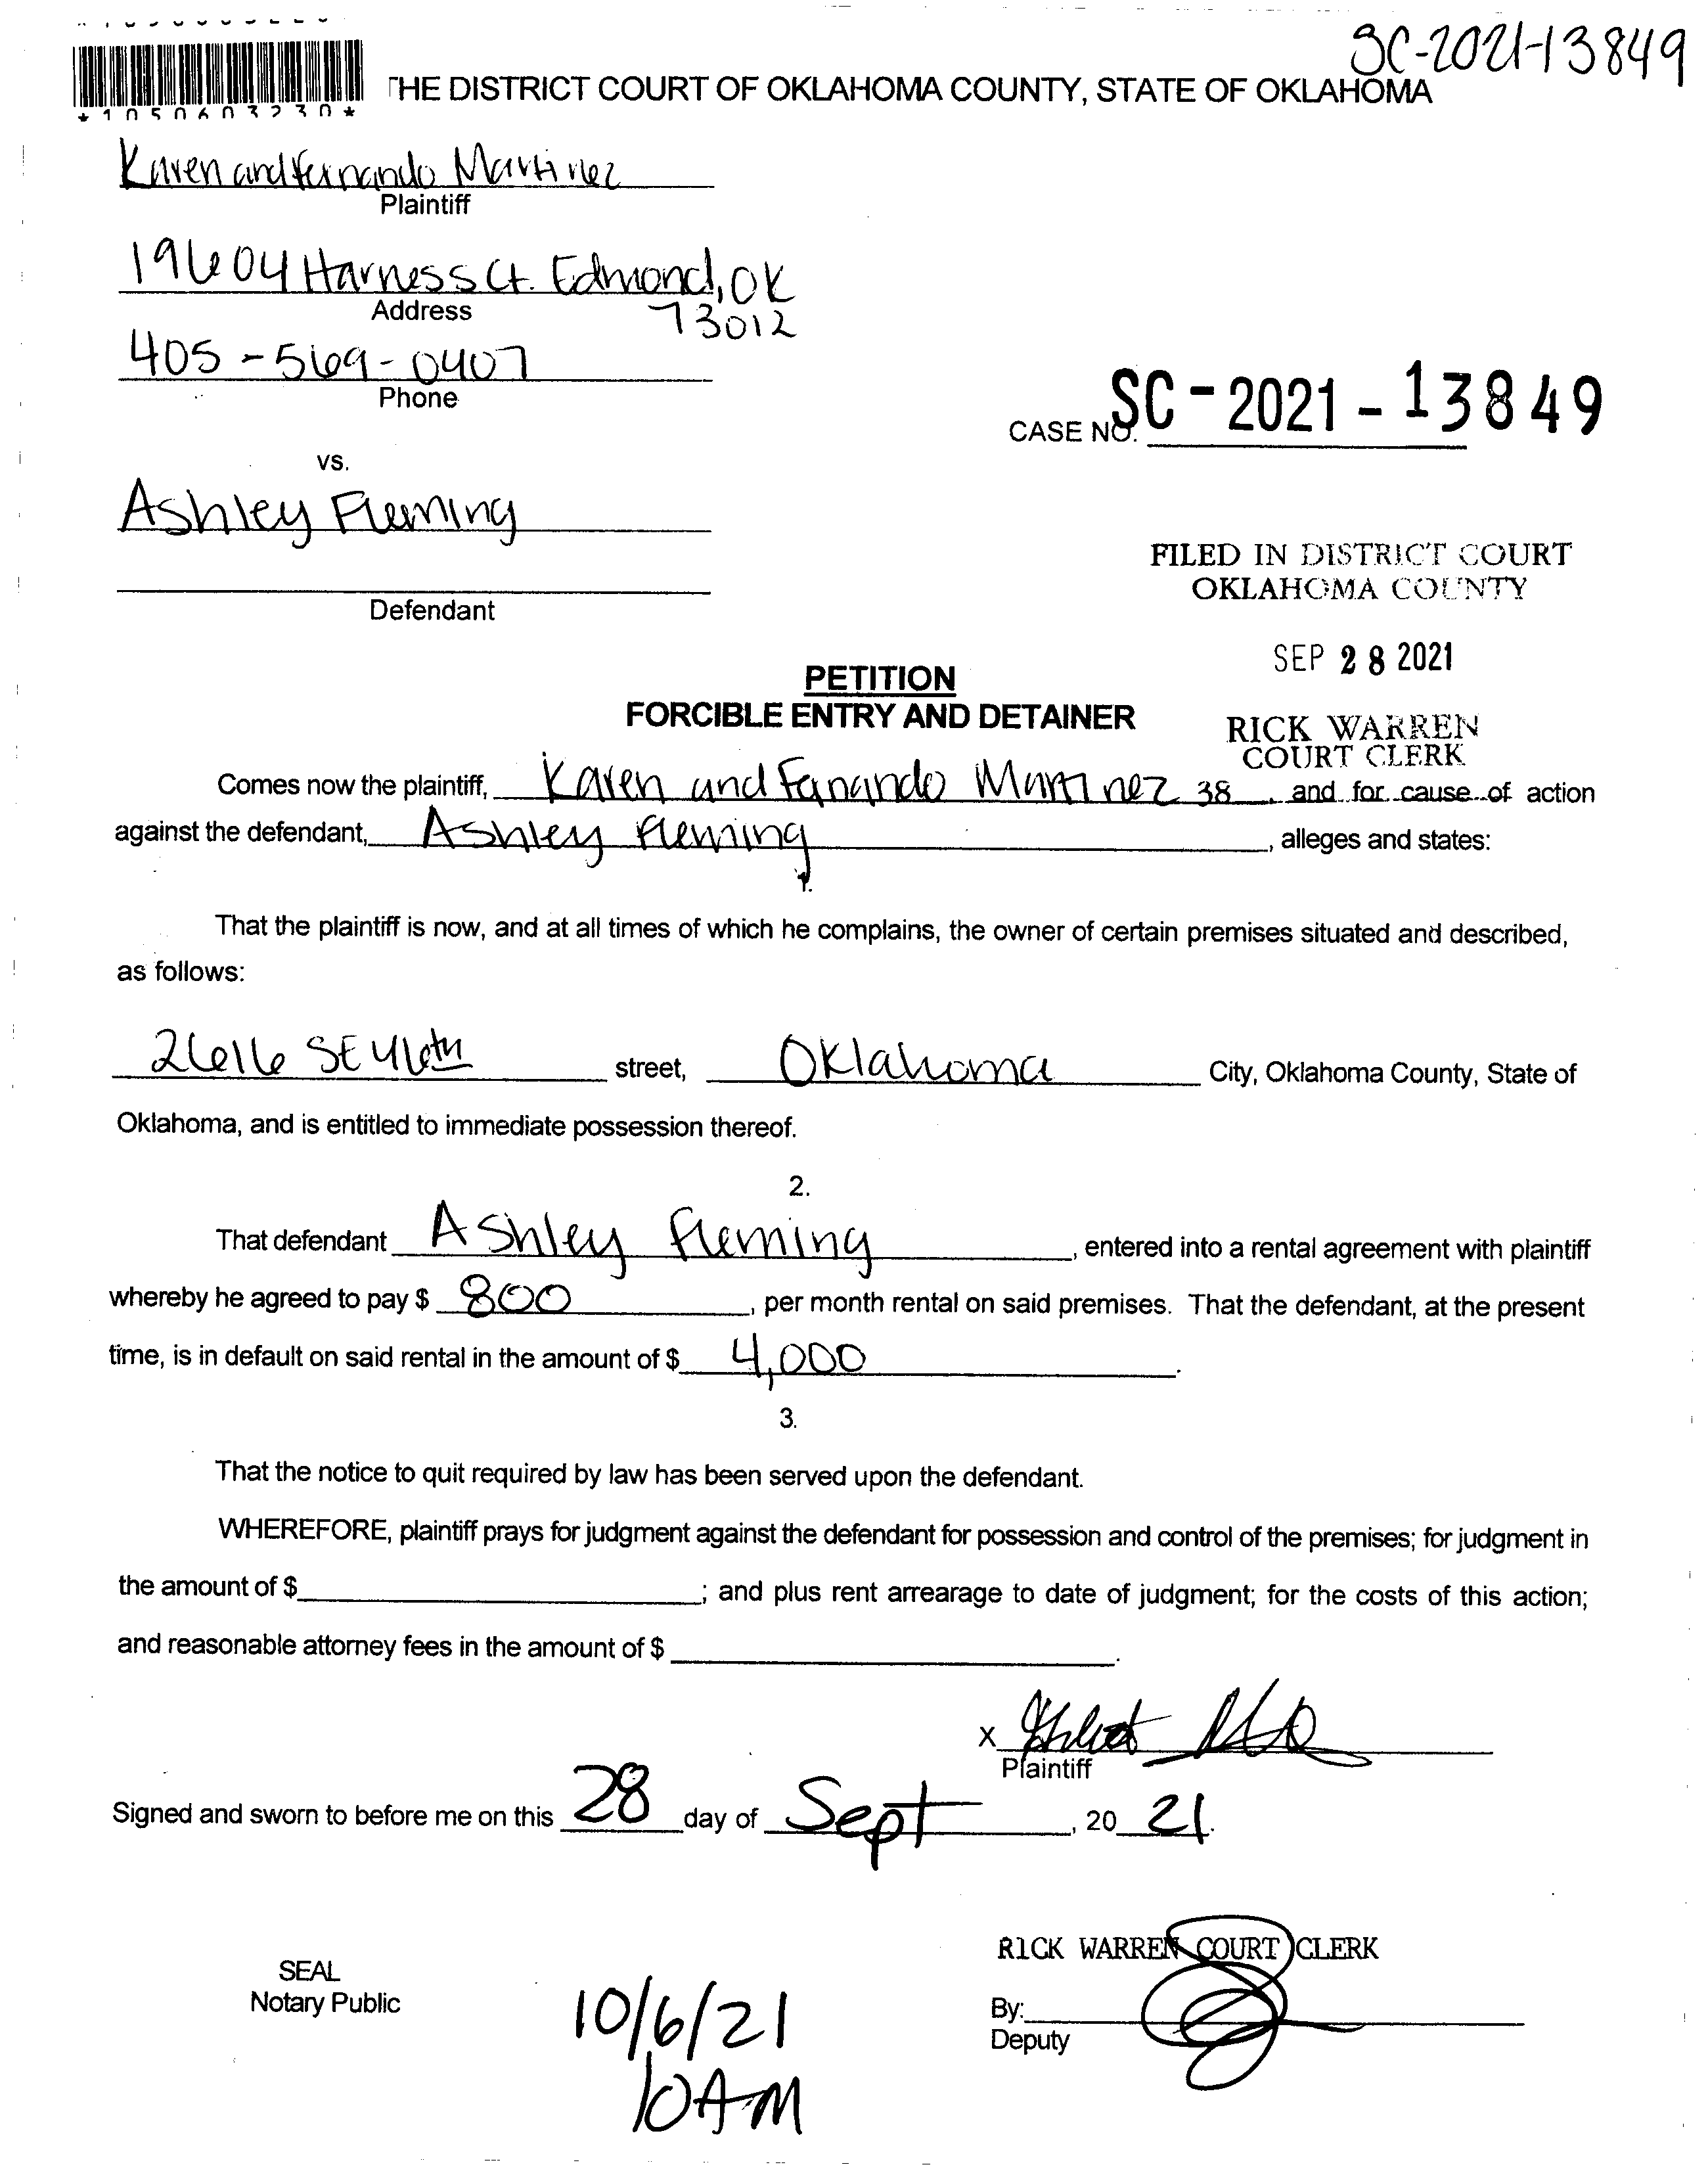 SC-2021-13849
THE DISTRICT COURT OF OKLAHOMA COUNTY, STATE OF OKLAHOMA
*1050603230*
Karen and Fernando Martinez
Plaintiff
19604 Harness Ct. Edmond, OK
73012
Address
405-569-0407
Phone
CASE NO. SC-2021-13849
vs.
Ashley Fleming
Defendant
FILED IN DISTRICT COURT
OKLAHOMA COUNTY
SEP 28 2021
RICK WARREN
COURT CLERK
PETITION
FORCIBLE ENTRY AND DETAINER
Comes now the plaintiff, Karen and Fernando Martinez 38, and for cause of action
against the defendant, Ashley Fleming, alleges and states:
1.
That the plaintiff is now, and at all times of which he complains, the owner of certain premises situated and described,
as follows:
2616 SE 46th street, Oklahoma City, Oklahoma County, State of
Oklahoma, and is entitled to immediate possession thereof.
2.
That defendant Ashley Fleming, entered into a rental agreement with plaintiff
whereby he agreed to pay $ 800, per month rental on said premises. That the defendant, at the present
time, is in default on said rental in the amount of $ 4,000.
3.
That the notice to quit required by law has been served upon the defendant.
WHEREFORE, plaintiff prays for judgment against the defendant for possession and control of the premises; for judgment in
the amount of $ ; and plus rent arrearage to date of judgment; for the costs of this action;
and reasonable attorney fees in the amount of $ .
X
Plaintiff
Signed and sworn to before me on this 28 day of Sept, 20 21.
RICK WARREN COURT CLERK
SEAL
Notary Public
By:
Deputy
10/6/21
10AM